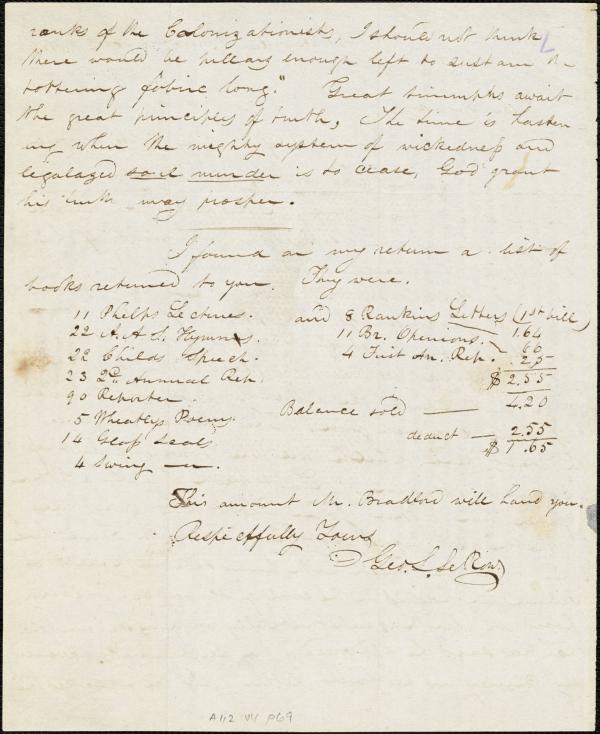 ranks of the Colonizationists, I should not think
there would be pillars enough left to sustain the
tottering fabric long." Great triumphs await
the great principles of truth, The time is hasten
ing when the mighty system of wickedness and
legalized soul murder is to cease, God grant
his truth may prosper.
I found on my return a list of
books returned to you. They were.
11 Phelps Lectures. and 8 Rankins Letters (1st bill)
22 A. A. S. Hymns. 11 Br. Opinions. 1.64
22 Childs Speech. 4 First An. Rep. 66
23 2d. Annual Rep. .25
90 Reporter $2.55
5 Wheatlys Poems. 4.20
Balance sold — 
14 Glass Seals deduct — 2.55
4 Swing —. $1.65
This amount Mr. Bradford will hand you.
Respectfully Yours
Geo. L. Le Row.
A112 V4 P69